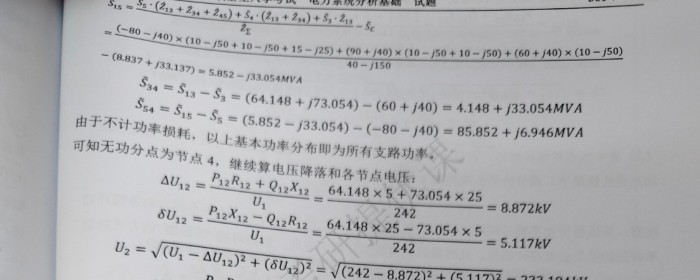 考试 电力系统分析基础 试题
S̃₁₅ = S̃₅·(Ẑ₁₃ + Ẑ₃₄ + Ẑ₄₅) + S̃₄·(Ẑ₁₃ + Ẑ₃₄) + S̃₃·Ẑ₁₃ / Ẑ_Σ − S̃c
= (−80 − j40) × (10 − j50 + 10 − j50 + 15 − j25) + (90 + j40) × (10 − j50 + 10 − j50) + (60 + j40) × (10 − j50) / 40 − j150
− (8.837 + j33.137) = 5.852 − j33.054MVA
S̃₃₄ = S̃₁₃ − S̃₃ = (64.148 + j73.054) − (60 + j40) = 4.148 + j33.054MVA
S̃₅₄ = S̃₁₅ − S̃₅ = (5.852 − j33.054) − (−80 − j40) = 85.852 + j6.946MVA
由于不计功率损耗，以上基本功率分布即为所有支路功率。
可知无功分点为节点 4，继续算电压降落和各节点电压：
ΔU₁₂ = P₁₂R₁₂ + Q₁₂X₁₂ / U₁ = 64.148 × 5 + 73.054 × 25 / 242 = 8.872kV
δU₁₂ = P₁₂X₁₂ − Q₁₂R₁₂ / U₁ = 64.148 × 25 − 73.054 × 5 / 242 = 5.117kV
U₂ = √(U₁ − ΔU₁₂)² + (δU₁₂)² = √(242 − 8.872)² + (5.117)²